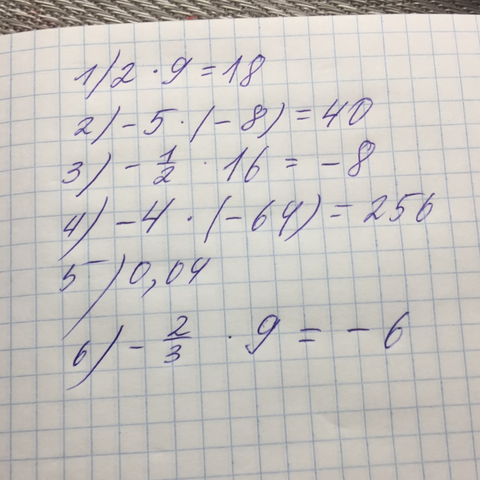 1) 2 · 9 = 18
2) - 5 · (- 8) = 40
3) - 1/2 · 16 = - 8
4) - 4 · (- 64) = 256
5) 0,04
6) - 2/3 · 9 = - 6